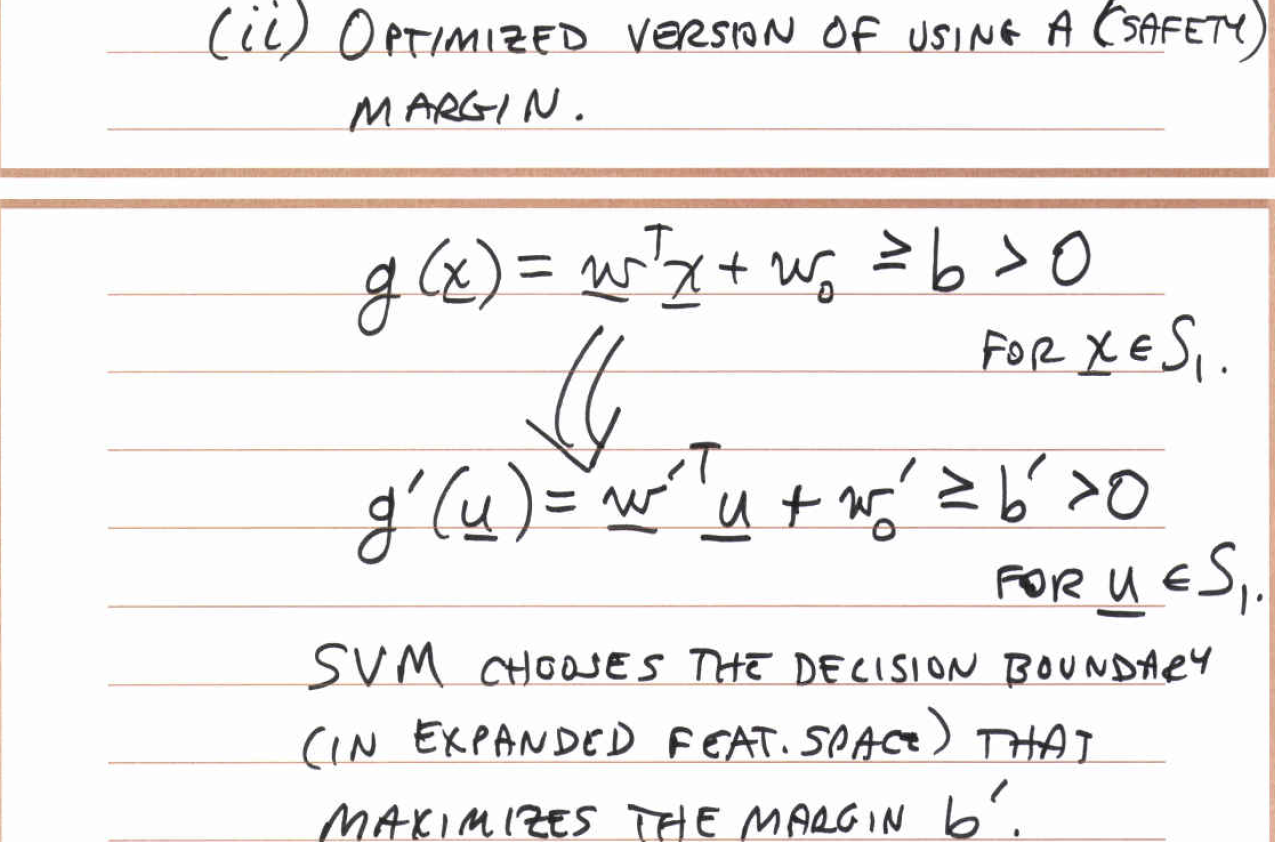 (ii) OPTIMIZED VERSION OF USING A (SAFETY)
MARGIN.
g(x) = wᵀx + w₀ ≥ b > 0
FOR x ∈ S₁.
g′(u) = w′ᵀu + w₀′ ≥ b′ > 0
FOR u ∈ S₁.
SVM CHOOSES THE DECISION BOUNDARY
(IN EXPANDED FEAT. SPACE) THAT
MAXIMIZES THE MARGIN b′.